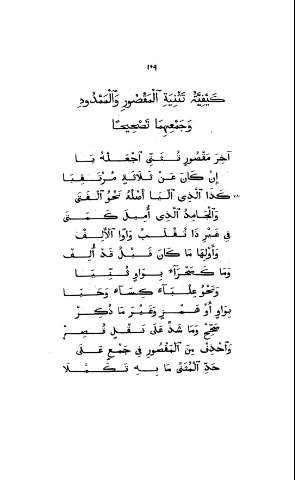 ١٠٩
كَيْفِيَّةُ تَثْنِيَةِ الْمَقْصُورِ وَالْمَمْدُودِ
وَجَمْعِهِمَا تَصْحِيحًا
آخِرَ مَقْصُورٍ تُثَنِّي اجْعَلْهُ يَا
إِنْ كَانَ عَنْ ثَلَاثَةٍ مُرْتَقِيَا
كَذَا الَّذِي الْيَا أَصْلُهُ نَحْوُ الْفَتَى
وَالْجَامِدُ الَّذِي أُمِيلَ كَمَتَى
فِي غَيْرِ ذَا تُقْلَبُ وَاوًا الْأَلِفْ
وَأَوْلِهَا مَا كَانَ قَبْلُ قَدْ أُلِفْ
وَمَا كَصَحْرَآءَ بِوَاوٍ ثُنِّيَا
وَنَحْوُ عِلْبَآءٍ كِسَآءٍ وَحَيَا
بِوَاوٍ أَوْ هَمْزٍ وَغَيْرَ مَا ذُكِرْ
صَحِّحْ وَمَا شَذَّ عَلَى نَقْلٍ قُصِرْ
وَاحْذِفْ مِنَ الْمَقْصُورِ فِي جَمْعٍ عَلَى
حَدِّ الْمُثَنَّى مَا بِهِ تَكَمَّلَا